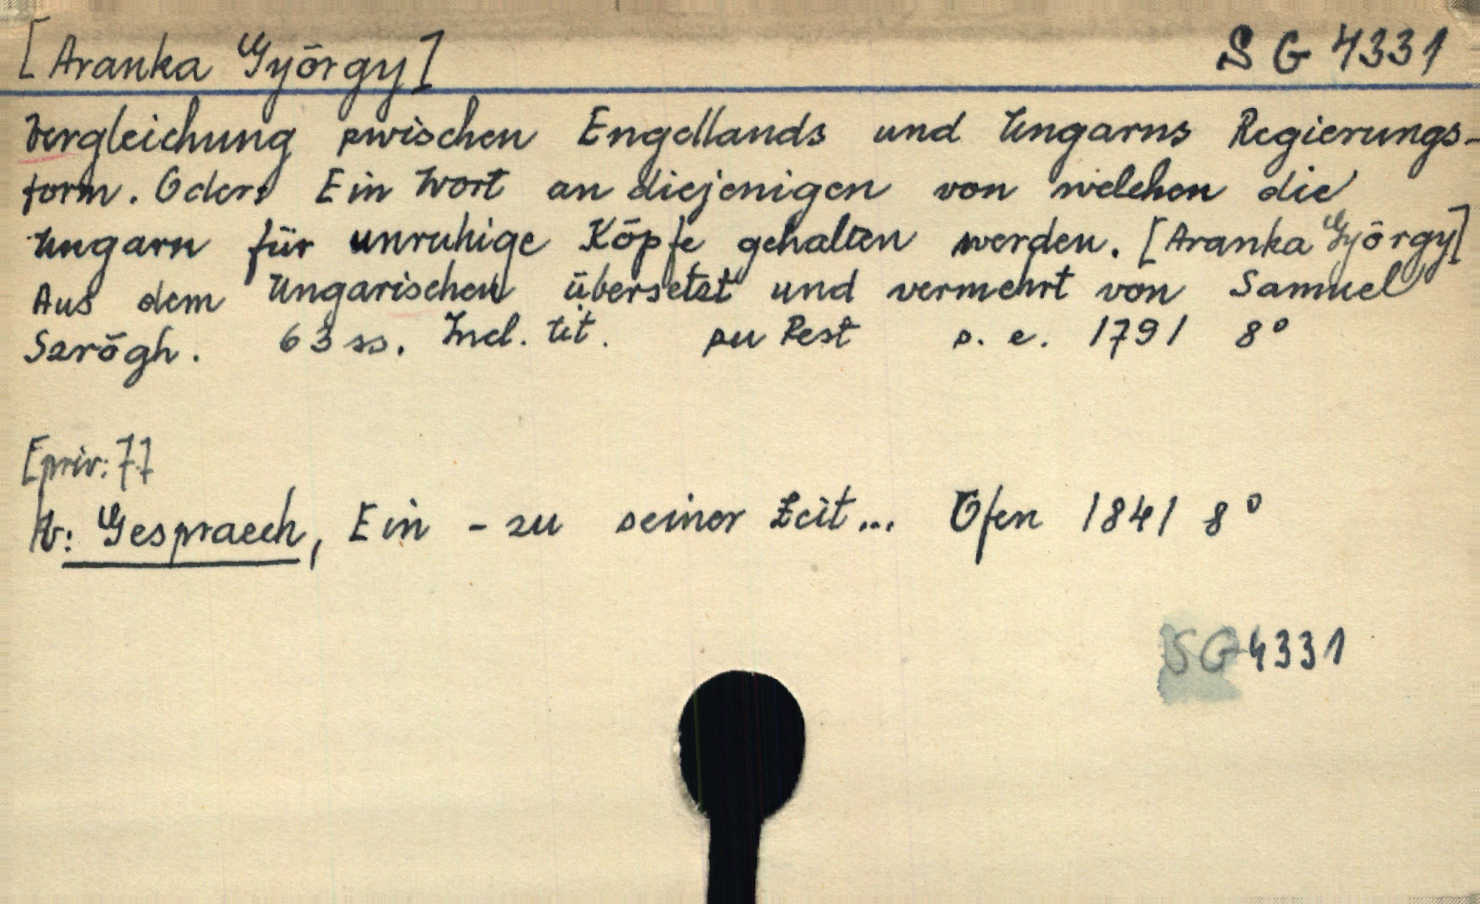 [Aranka György] SG 4331
Vergleichung zwischen Engellands und Ungarns Regierungs-
form. Oder: Ein Wort an diejenigen von welchen die
Ungarn für unruhige Köpfe gehalten werden. [Aranka György]
Aus dem Ungarischen übersetzt und vermehrt von Samuel
Szrógh. 63 ss. Incl. tit. zu Pest s. e. 1791 8°
[priv: 7.]
Av: Gespraech, Ein - zu seiner Zeit... Ofen 1841 8°
SG 4331